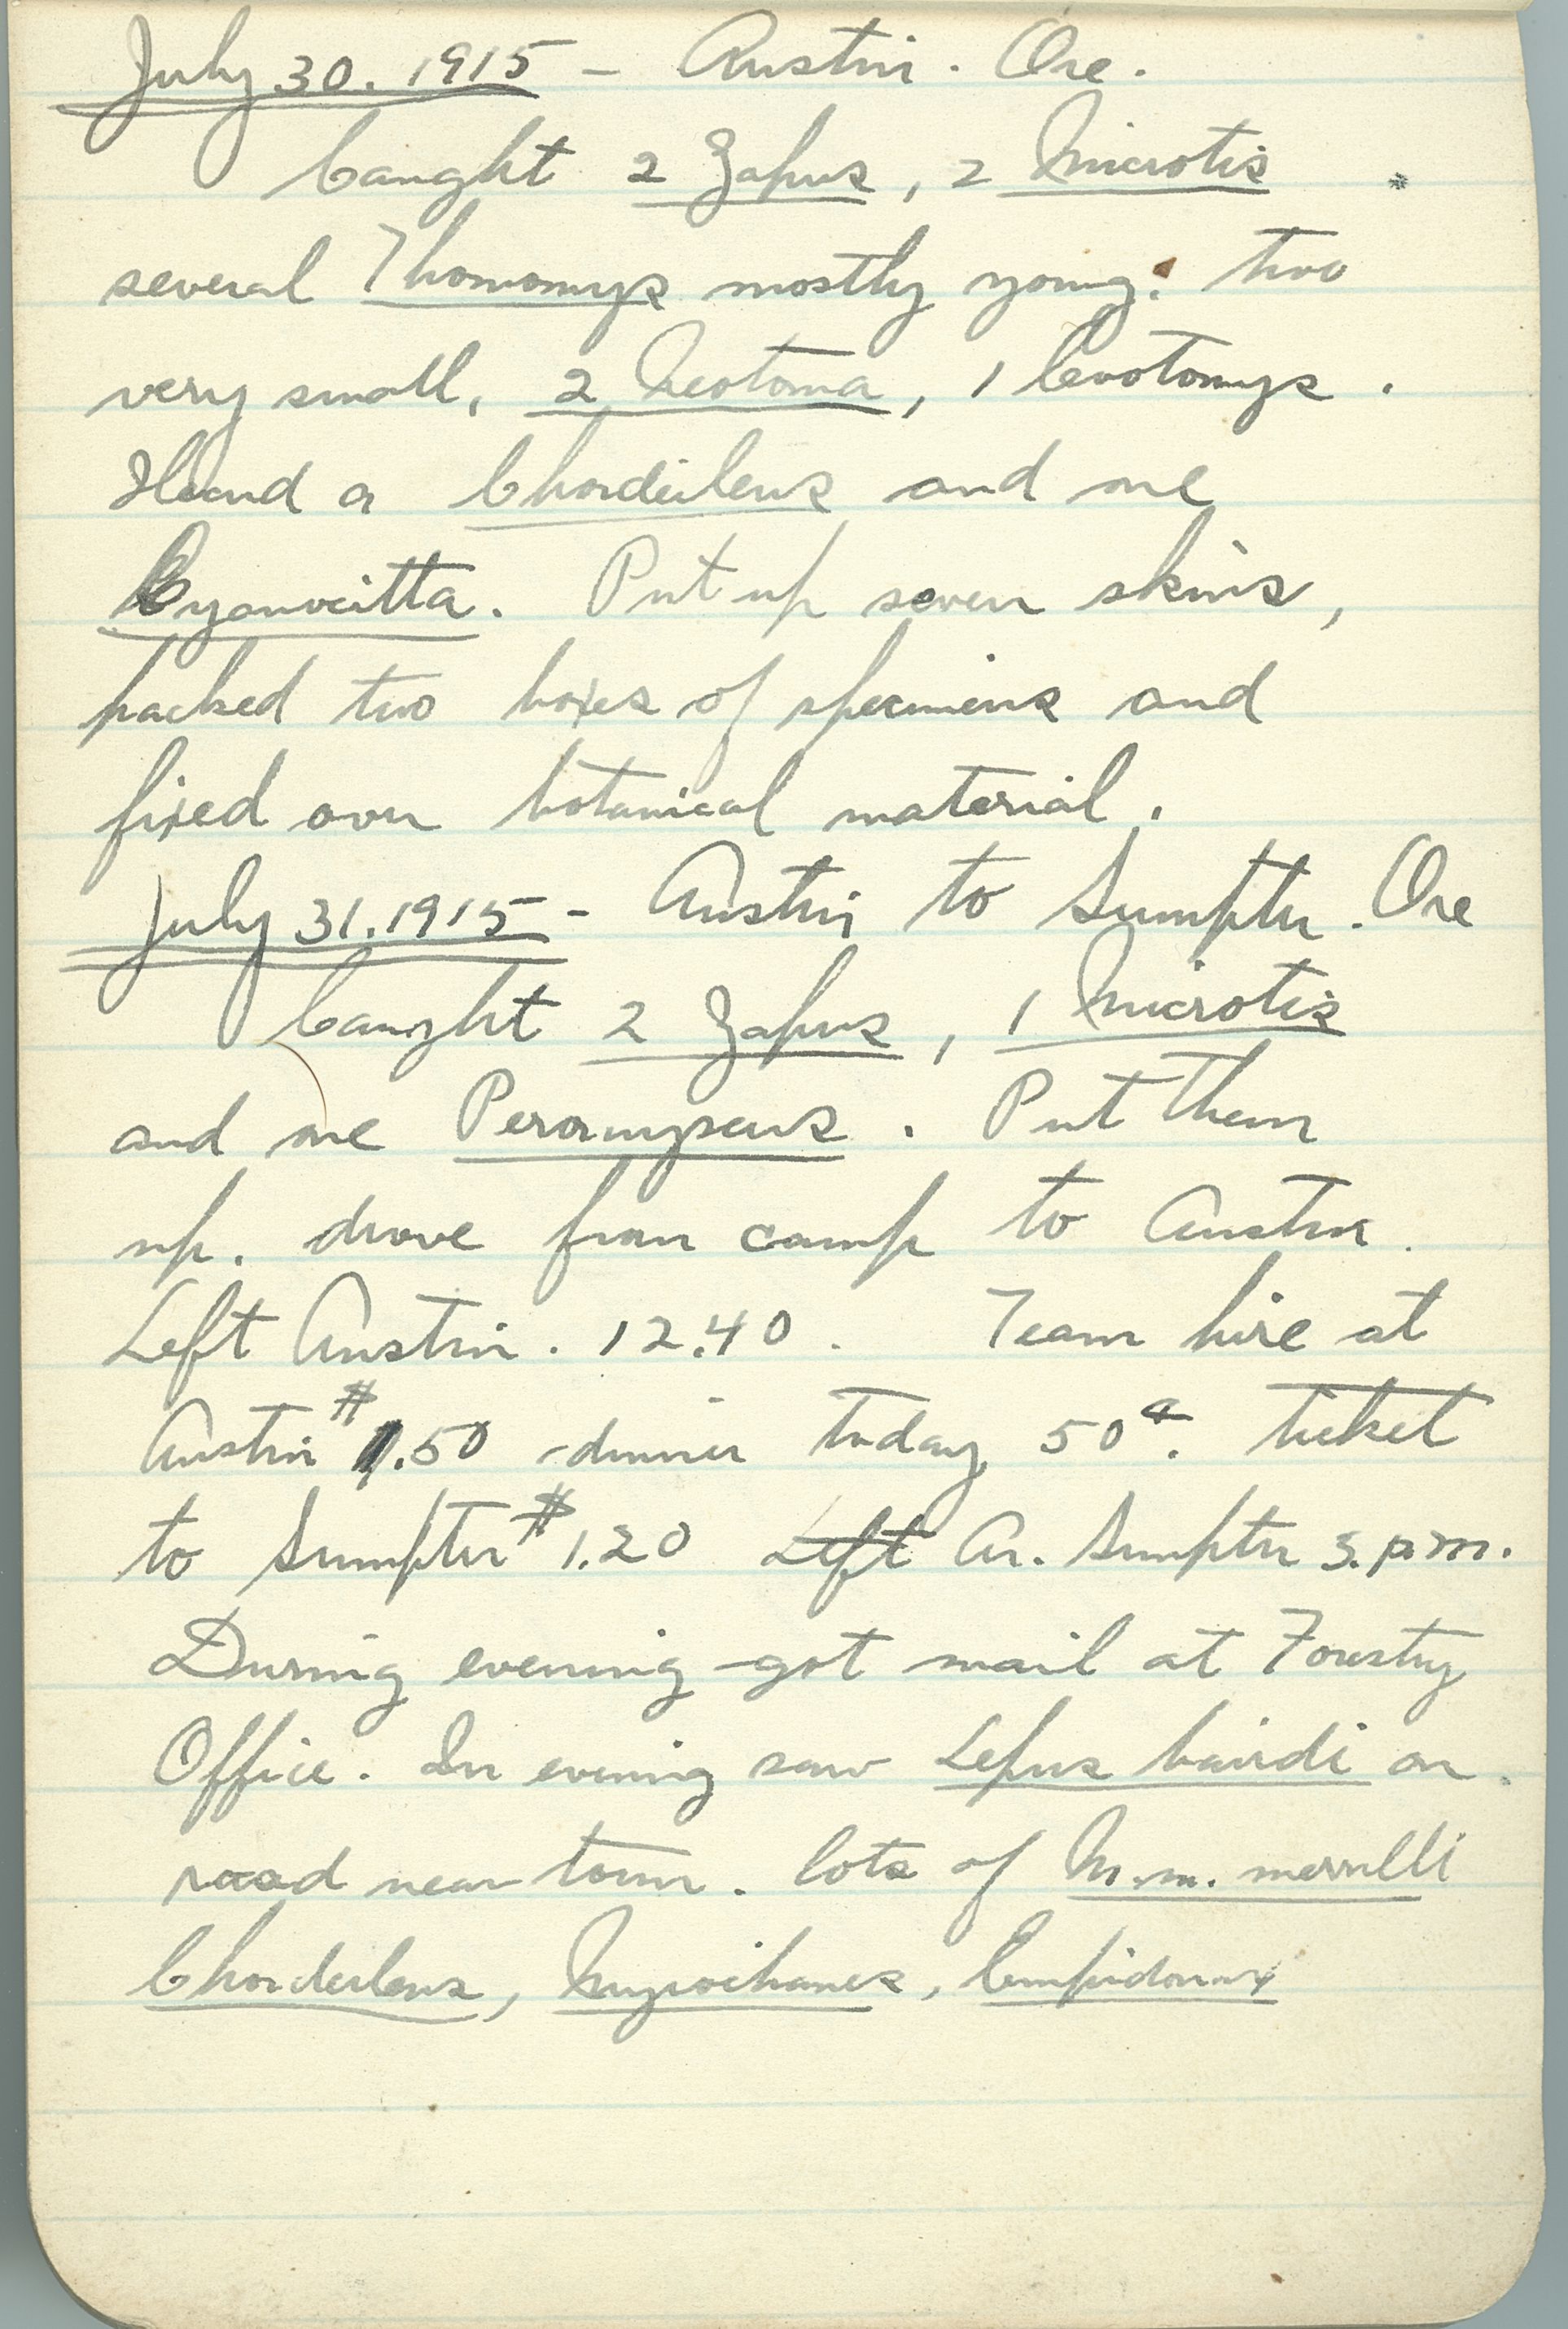 July 30. 1915 - Austin. Ore.
Caught 2 Zapus, 2 Microtis
several Thomomys mostly young: two
very small, 2 Neotoma, 1 Evotomys.
Heard a Chordeiles and one
Cyanocitta. Put up seven skins,
packed two boxes of specimens and
fixed over botanical material.
July 31. 1915 - Austin to Sumpter. Ore
Caught 2 Zapus, 1 Microtis
and one Peromyscus. Put them
up. drove from camp to Austin.
Left Austin. 12.40. Team hire at
Austin $1.50 dinner today 50¢. ticket
to Sumpter $1.20 Left Ar. Sumpter 3. p.m.
During evening got mail at Forestry
Office. In evening saw Lepus bairdi on
road near town. lots of M. m. merrilli
Chordeiles, Myiochanes, Empidonax